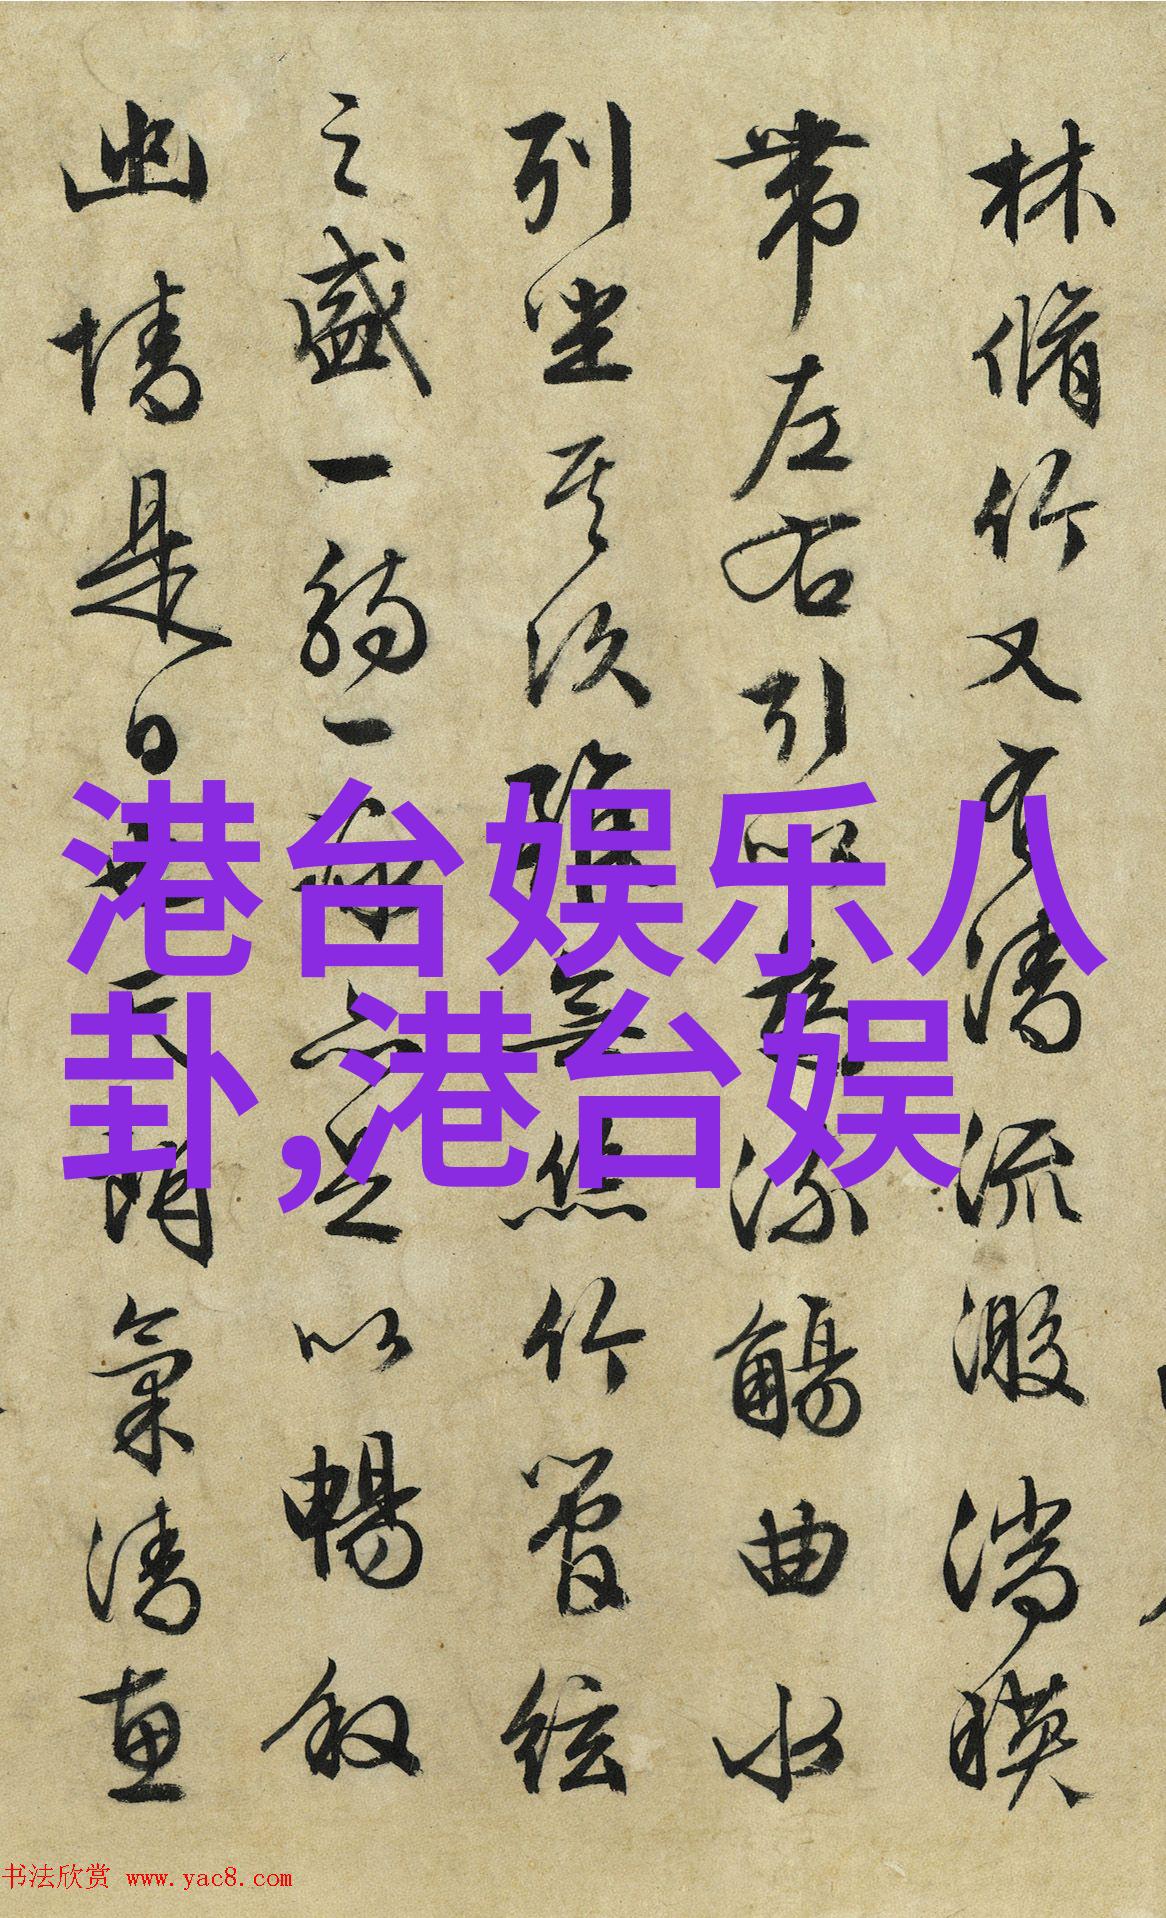 林脩竹又有清流激湍暎
帶左右引以為流觴曲水
列坐其次雖無絲竹管絃
之盛一觴一詠亦足以暢叙
幽情是日也天朗氣清惠
港台娱乐八
卦,港台娱
书法欣赏 www.yac8.com